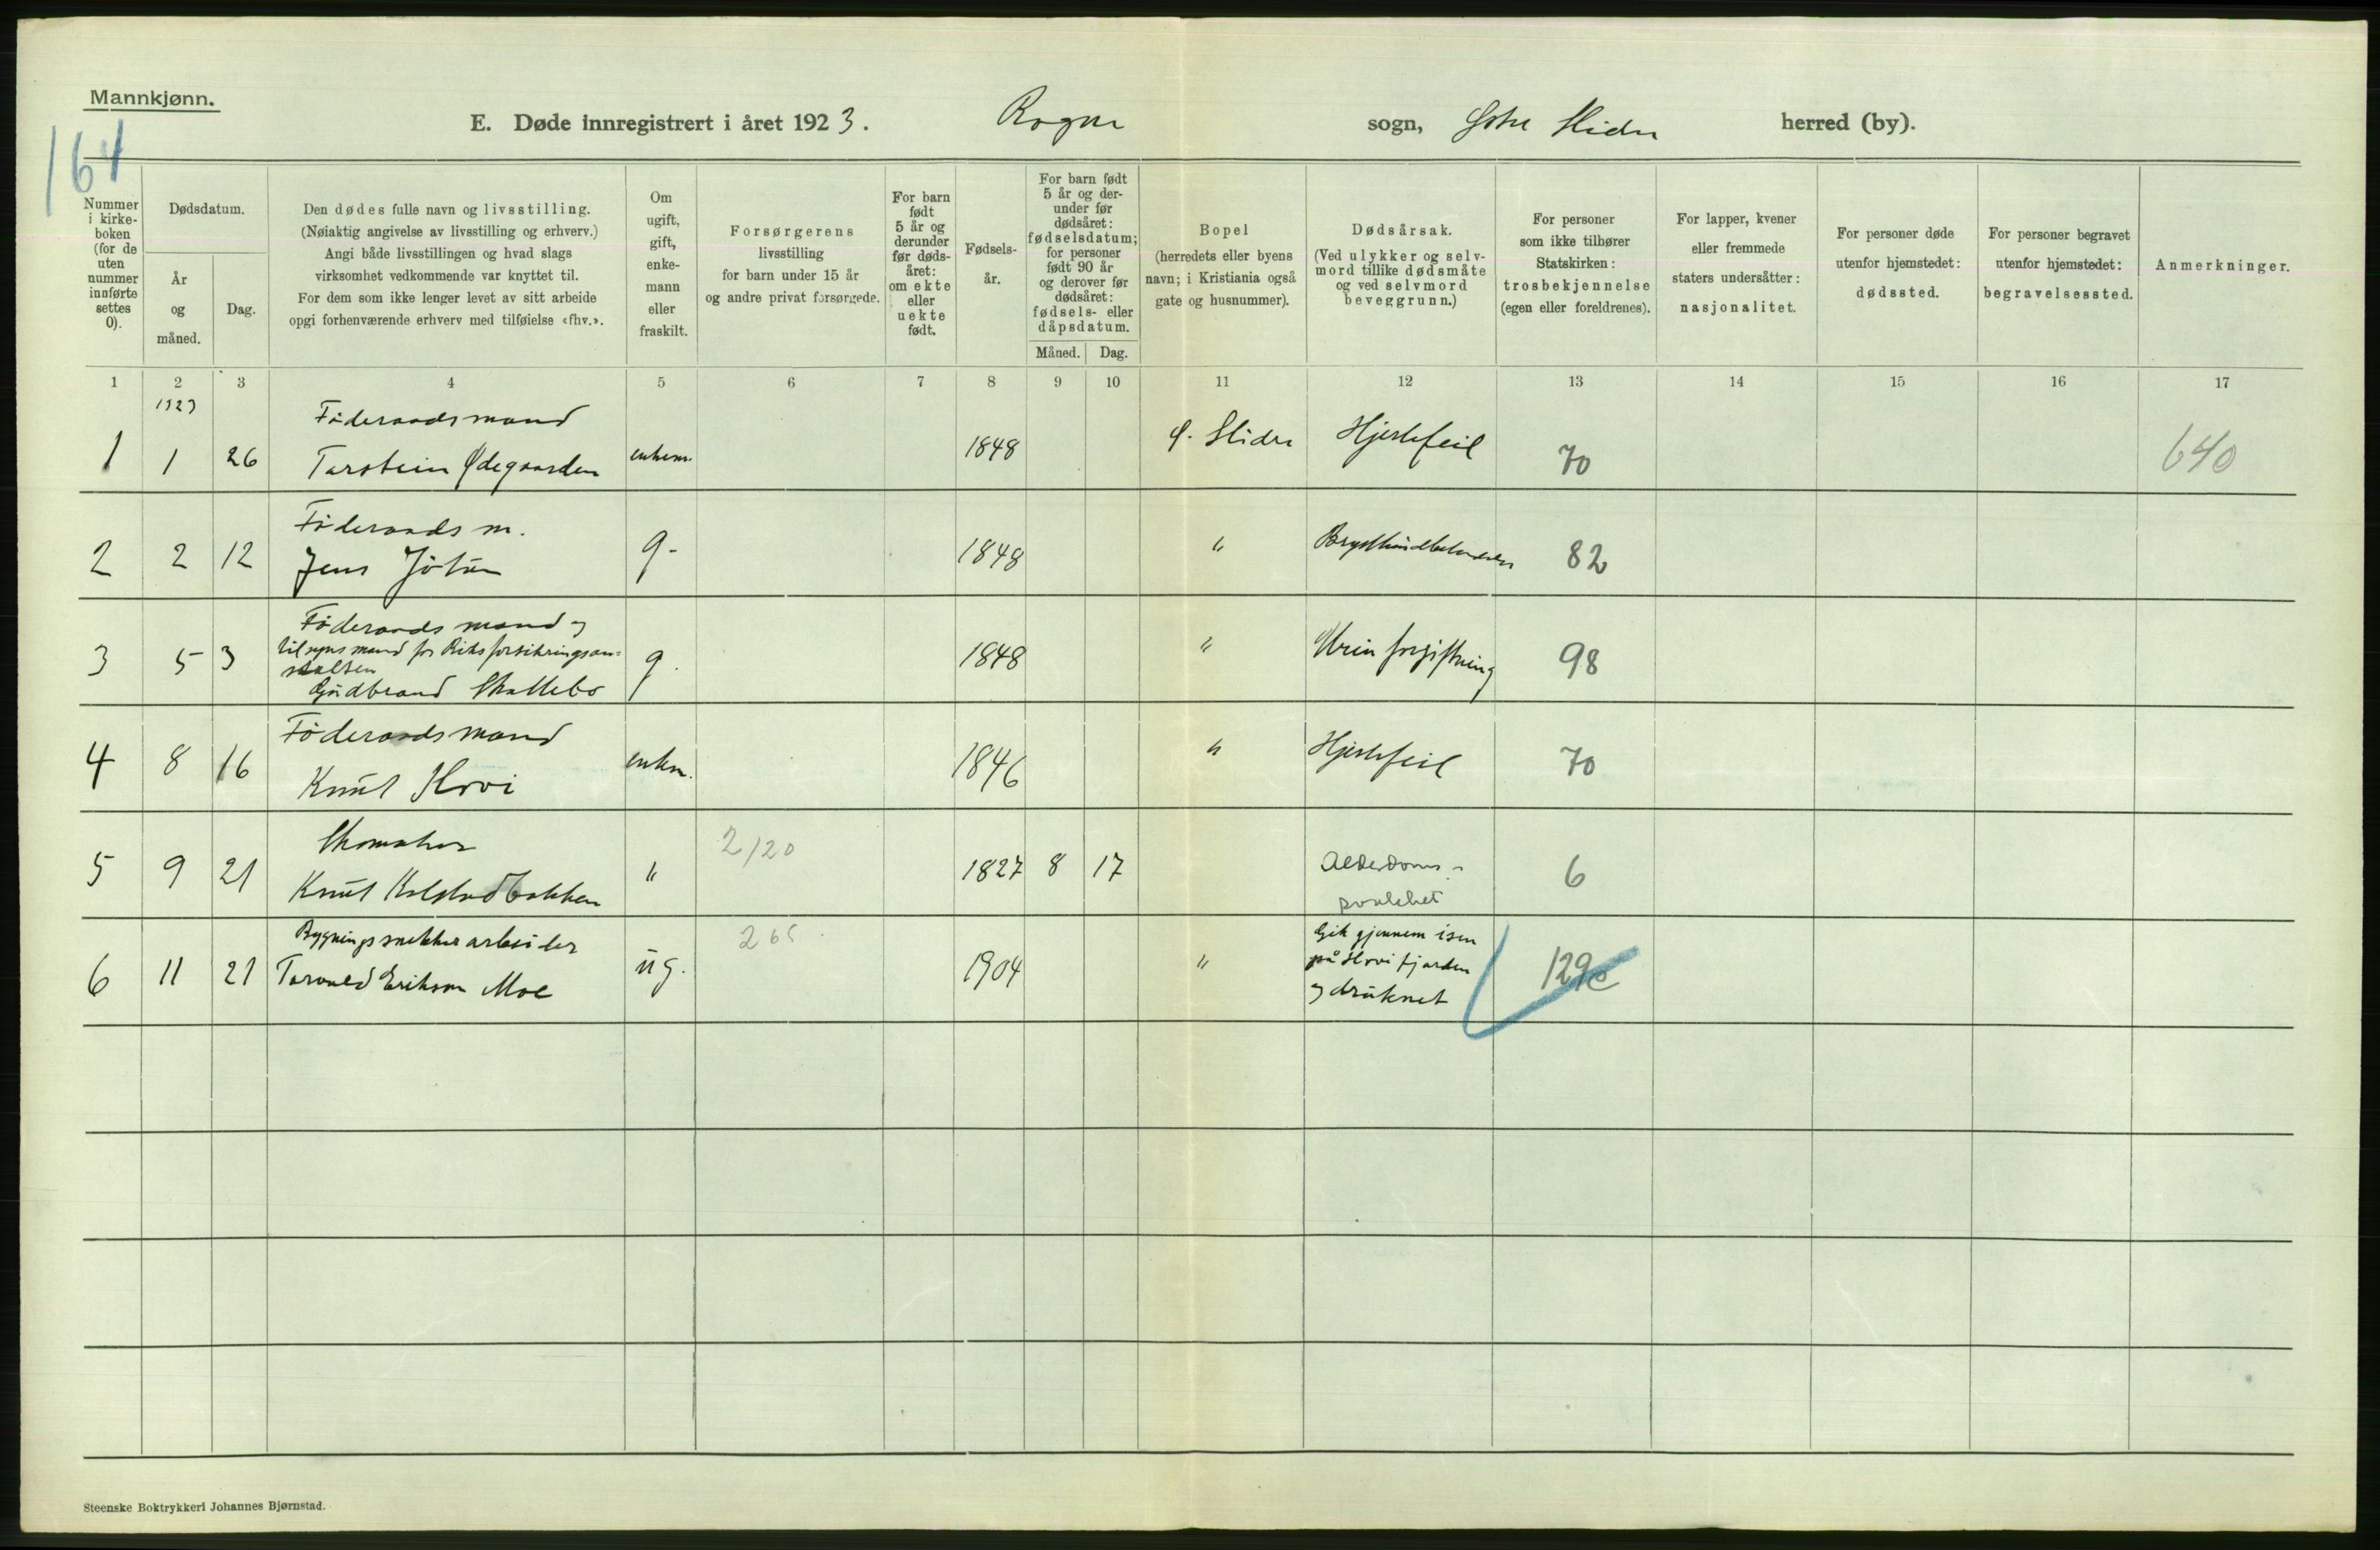 Mannkjønn.
164
E. Døde innregistrert i året 1923. Rogne sogn, Østre Slidre herred (by).
Nummer i kirke- boken (for de uten nummer innførte settes 0).
Dødsdatum.
År og måned.
Dag.
Den dødes fulle navn og livsstilling.
(Nøiaktig angivelse av livsstilling og erhverv.)
Angi både livsstillingen og hvad slags
virksomhet vedkommende var knyttet til.
For dem som ikke lenger levet av sitt arbeide
opgi forhenværende erhverv med tilføielse «fhv.».
Om ugift, gift, enke- mann eller fraskilt.
Forsørgerens
livsstilling
for barn under 15 år
og andre privat forsørgede.
For barn født 5 år og derunder før døds- året: om ekte eller uekte født.
Fødsels- år.
For barn født 5 år og der- under før dødsåret: fødselsdatum; for personer født 90 år og derover før dødsåret: fødsels- eller dåpsdatum.
Måned. Dag.
Bopel
(herredets eller byens
navn; i Kristiania også
gate og husnummer).
Dødsårsak.
(Ved ulykker og selv-
mord tillike dødsmåte
og ved selvmord
beveggrunn.)
For personer
som ikke tilhører
Statskirken:
trosbekjennelse
(egen eller foreldrenes).
For lapper, kvener
eller fremmede
staters undersåtter:
nasjonalitet.
For personer døde
utenfor hjemstedet:
dødssted.
For personer begravet
utenfor hjemstedet:
begravelsessted.
Anmerkninger.
1 2 3 4 5 6 7 8 9 10 11 12 13 14 15 16 17
1923
Føderaadsmand
1 1 26 Torstein Ødegaarden enkem. 1848 Ø. Slidre Hjertefeil 70 640
Føderaadsm.
2 2 12 Jens g. 1848 " 82
Føderaadsmand og
tilsynsmand for Riksforsikringsan=
stalten
3 5 3 Gudbrand Skattebo g. 1848 " Urinforgiftning 98
Føderaadsmand
4 8 16 Knut Hovi enkm. 1846 " Hjertefeil 70
Skomaker
2/20
5 9 21 Knut Kolstadbakken " 1827 8 17 Alderdoms-
svakhet 6
Bygningssnekkerarbeider
265
6 11 21 Torvald Erikson Moe ug. 1904 " Gik gjennem isen
på Hovifjorden
og druknet
129c
Steenske Boktrykkeri Johannes Bjørnstad.